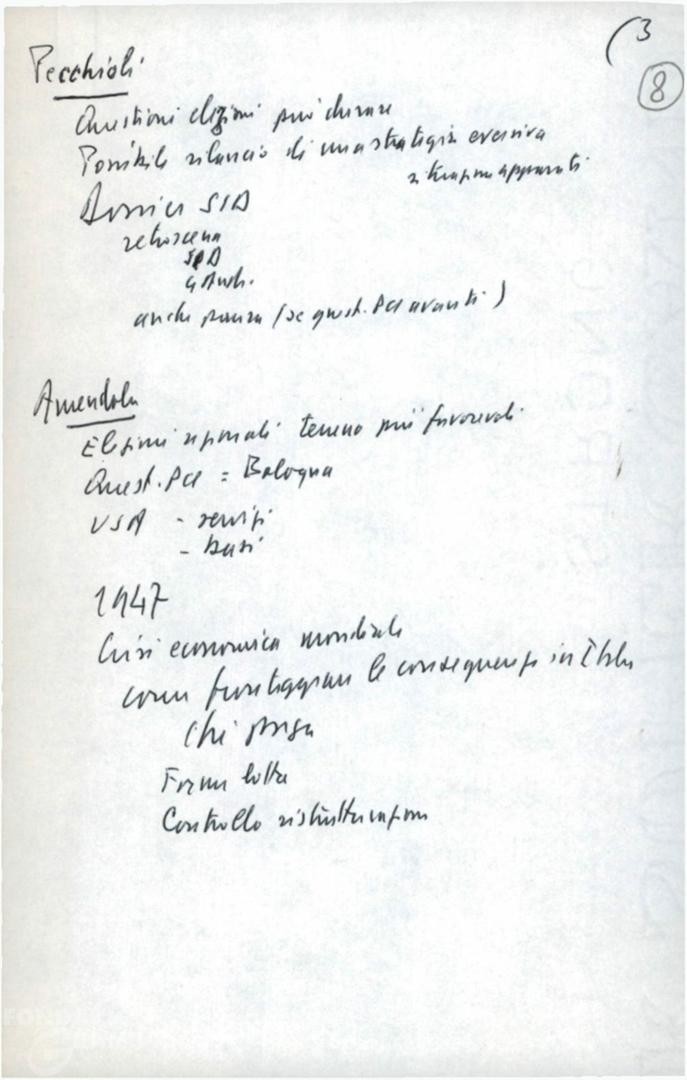 (3
8
Pecchioli
Questioni elezioni più chiare
Possibile rilancio di una strategia eversiva
situazione apparati
Dossier SID
retroscena
SID
anche paura (se quest. PCI avanti)
Amendola
Elezioni regionali terreno più favorevole
Quest. PCI = Bologna
USA - servizi
- basi
1947
Crisi economica mondiale
come fronteggiare le conseguenze in Italia
Chi paga
Forme lotta
Controllo ristrutturazione